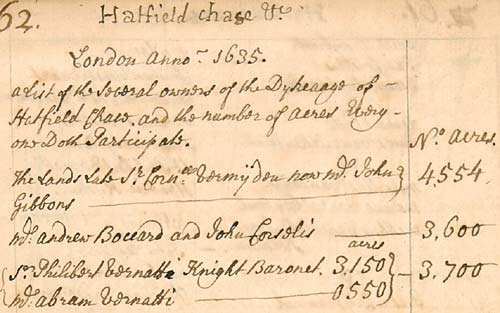 62.
Hatfield chase &c
London Anno 1635.
a List of the Several owners of the Dykeage of
Hatfield Chace. and the number of acres Every
one Doth Participate.
No. Acres.
The Lands Late Sr. Corn. Vermijden now Mr. John
Gibbons 4554
Mr. andrew Boccard and John Corselis 3,600
acres
Sr. Philibert Vernatti Knight Baronet. 3.150
3.700
Mr. abram Vernatti 0550